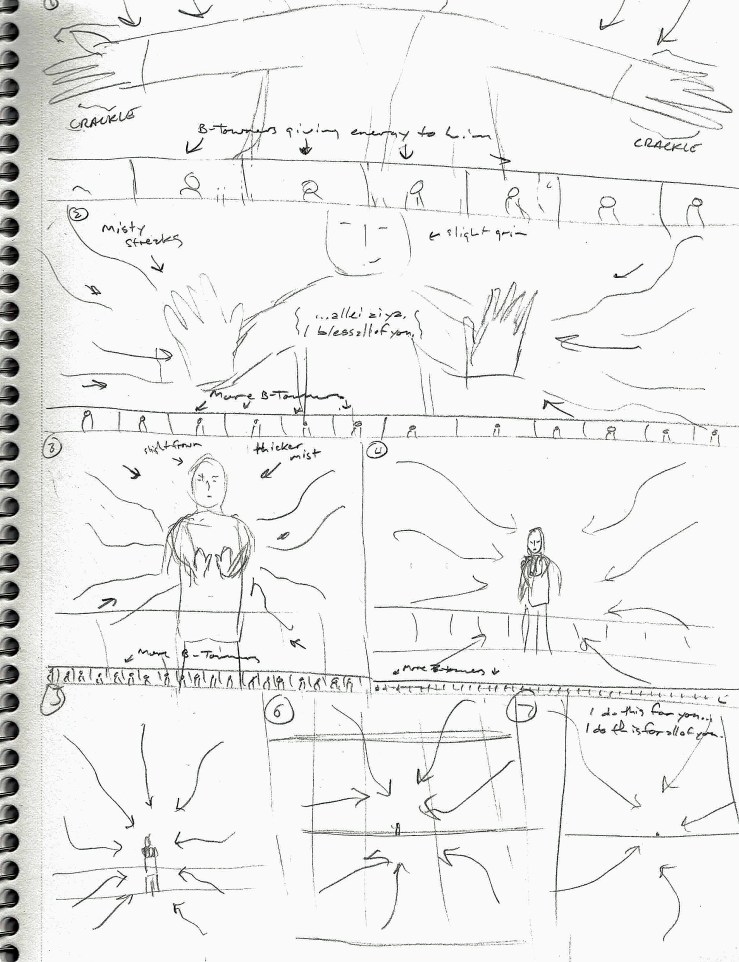 1
CRACKLE
B-Towners giving energy to him
CRACKLE
2
Misty
streaks
slight grin
...allei ziya.
I bless all of you.
More B-Towners
3
slight frown
thicker
mist
More B-Towners
4
More B-Towners
5
6
7
I do this for you...
I do this for all of you.